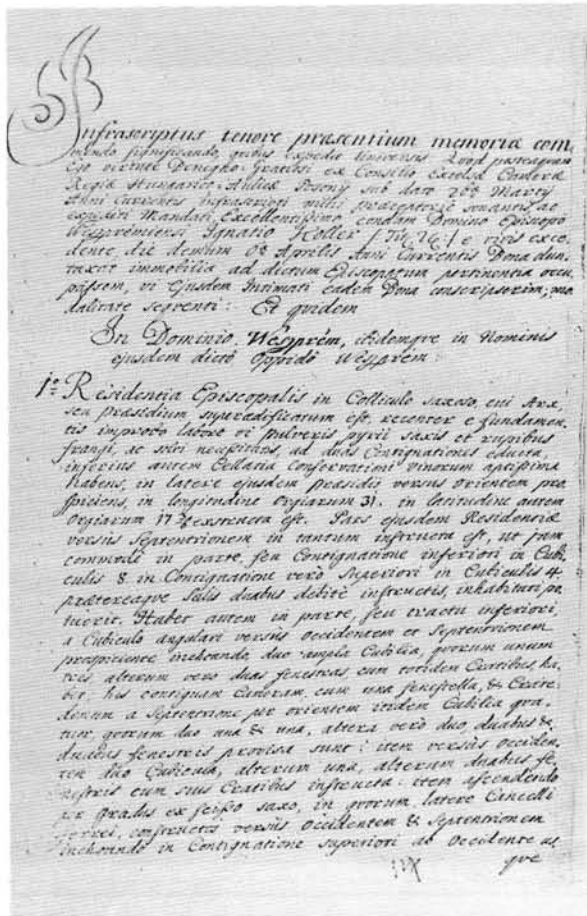 Infrascriptus tenore præsentium memoriæ com
mendo significando, quibus expedit Universis. Quod posteaquam
Ego virtute Benegno-Gratiosi ex Consilio Excelsæ Cameræ
Regiæ Hungarico-Aulicæ Posony sub dato 26a Marty
Anni Currentis infrascripti mihi præceptorie sonantis ac
expediti Mandati, Excellentissimo condam Domino Episcopo
Wesprimiensi Ignatio Koller /: Tit. Tit :/ e vivis exce
dente, die demum 0a Aprilis Anni Currentis Bona dun
taxat immobilia ad dictum Episcopatum pertinentia occu
passem, vi ejusdem Intimati eadem Bona conscripserim, mo
dalitate sequenti: Et quidem
In Dominio Wesprém, itidemque in Nominis
ejusdem dicto Oppido Wesprém:
1o Residentia Episcopalis in Colliculo saxoso, cui Arx,
seu præsidium superædificatum est, recenter e fundamen
tis improbo labore vi pulveris pyrii saxis et rupibus
frangi, ac solvi necessitans, ad duas Contignationes educta,
inferius autem Cellaria conservationi vinorum aptissima
habens, in latere ejusdem præsidii versus orientem pro
spiciens, in longitudine Orgiarum 31. in latitudine autem
Orgiarum 17 exstructa est. Pars ejusdem Residentiæ
versus Septentrionem in tantum instructa est, ut jam
commode in parte, seu Contignatione inferiori in Cubi
culis 8. in Contignatione vero Superiori in Cubiculis 4.
prætereaque Salis duabus debite instructis, inhabitari po
tuerit. Habet autem in parte, seu tractu inferiori,
a Cubiculo angulari versus Occidentem et Septentrionem
prospiciente inchoando, duo ampla Cubilia, quorum unum
tres, alterum vero duas fenestras, cum totidem Cratibus ha
bet, his contiguam Cameram, cum una fenestella, & Crate
demum a Septentrione per orientem itidem Cubilia qua
tuor, quorum duo una & una, altera vero duo, duabus &
duabus fenestris provisa sunt: item versus Occiden
tem duo Cubicula, alterum una, alterum duabus fe
nestris cum suis Cratibus instructa: item ascendendo
per gradus ex scisso saxo, in quorum latere Cancelli
ferrei, constructos versus Occidentem & Septentrionem
inchoando in Contignatione superiori ab Occidente us
que